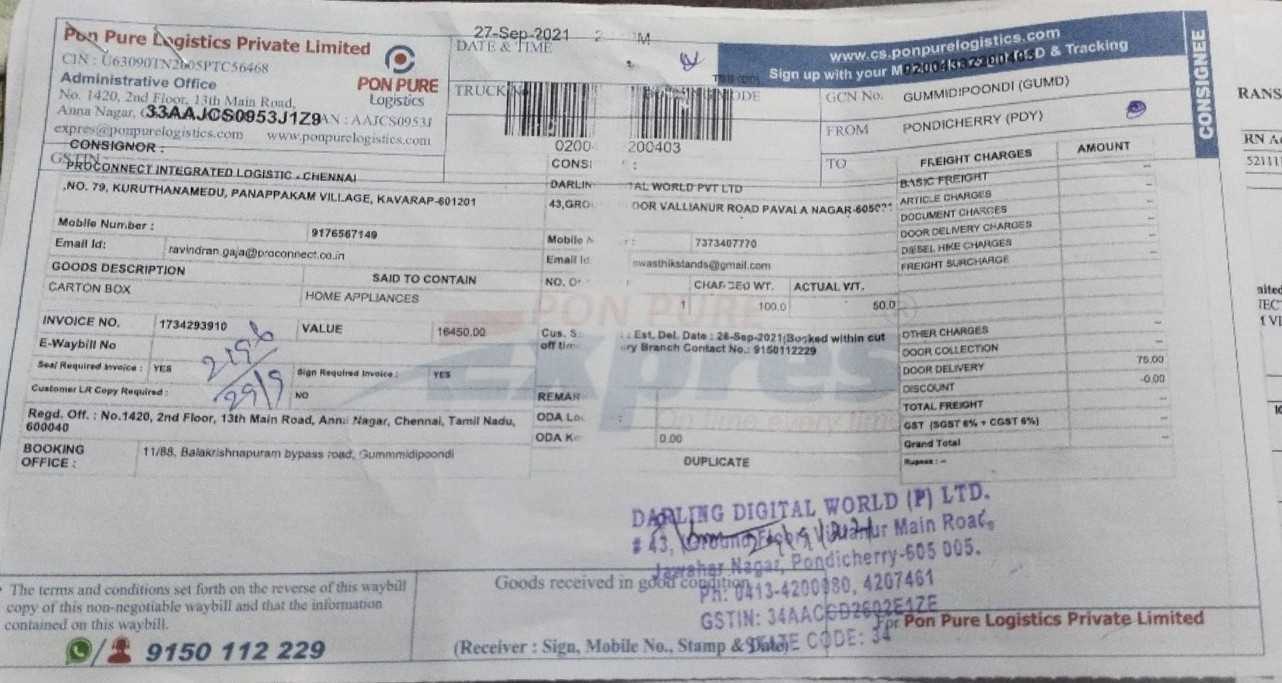 Pon Pure Logistics Private Limited
CIN : U63090TN2005PTC56468
Administrative Office
No. 1420, 2nd Floor, 13th Main Road,
Anna Nagar,
33AAJCS0953J1Z9
AN : AAJCS0953J
expres@ponpurelogistics.com www.ponpurelogistics.com
GSTIN
PON PURE
Logistics
27-Sep-2021
DATE & TIME
TRUCK
MODE
0200
200403
www.cs.ponpurelogistics.com
Sign up with your
& Tracking
GCN No. GUMMIDIPOONDI (GUMD)
FROM PONDICHERRY (PDY)
TO
CONSIGNEE
CONSIGNOR :
PROCONNECT INTEGRATED LOGISTIC - CHENNAI
,NO. 79, KURUTHANAMEDU, PANAPPAKAM VILLAGE, KAVARAP-601201
Mobile Number : 9176567149
Email Id: ravindran.gaja@proconnect.co.in
CONSI :
DARLIN TAL WORLD PVT LTD
43,GRO OOR VALLIANUR ROAD PAVALA NAGAR-605021
Mobile N : 7373407770
Email Id swasthikstands@gmail.com
GOODS DESCRIPTION SAID TO CONTAIN
CARTON BOX HOME APPLIANCES
NO. O CHARGED WT. ACTUAL WT.
1 100.0 50.0
INVOICE NO. 1734293910 VALUE 16450.00
E-Waybill No
Seal Required Invoice : YES Sign Required Invoice : YES
Customer LR Copy Required : NO
2196
29/9
Cus. S : Est. Del. Date : 28-Sep-2021|Booked within cut
off time ry Branch Contact No.: 9150112229
REMAR
ODA Lo :
ODA K 0.00
DUPLICATE
PON PURE
Expres
On time every time
Regd. Off. : No.1420, 2nd Floor, 13th Main Road, Anna Nagar, Chennai, Tamil Nadu,
600040
BOOKING
OFFICE :
11/88, Balakrishnapuram bypass road, Gummmidipoondi
FREIGHT CHARGES AMOUNT
BASIC FREIGHT --
ARTICLE CHARGES --
DOCUMENT CHARGES --
DOOR DELIVERY CHARGES --
DIESEL HIKE CHARGES --
FREIGHT SURCHARGE --
OTHER CHARGES --
DOOR COLLECTION --
DOOR DELIVERY 75.00
DISCOUNT -0.00
TOTAL FREIGHT --
GST (SGST 6% + CGST 6%) --
Grand Total --
Rupees : --
DARLING DIGITAL WORLD (P) LTD.
# 43, Ground Floor, Villianur Main Road,
Jawahar Nagar, Pondicherry-605 005.
Ph: 0413-4200980, 4207461
GSTIN: 34AACCD2602E1ZE
STATE CODE: 34
29/9/2021
The terms and conditions set forth on the reverse of this waybill
copy of this non-negotiable waybill and that the information
contained on this waybill.
9150 112 229
Goods received in good condition
(Receiver : Sign, Mobile No., Stamp & Date)
For Pon Pure Logistics Private Limited
RANS